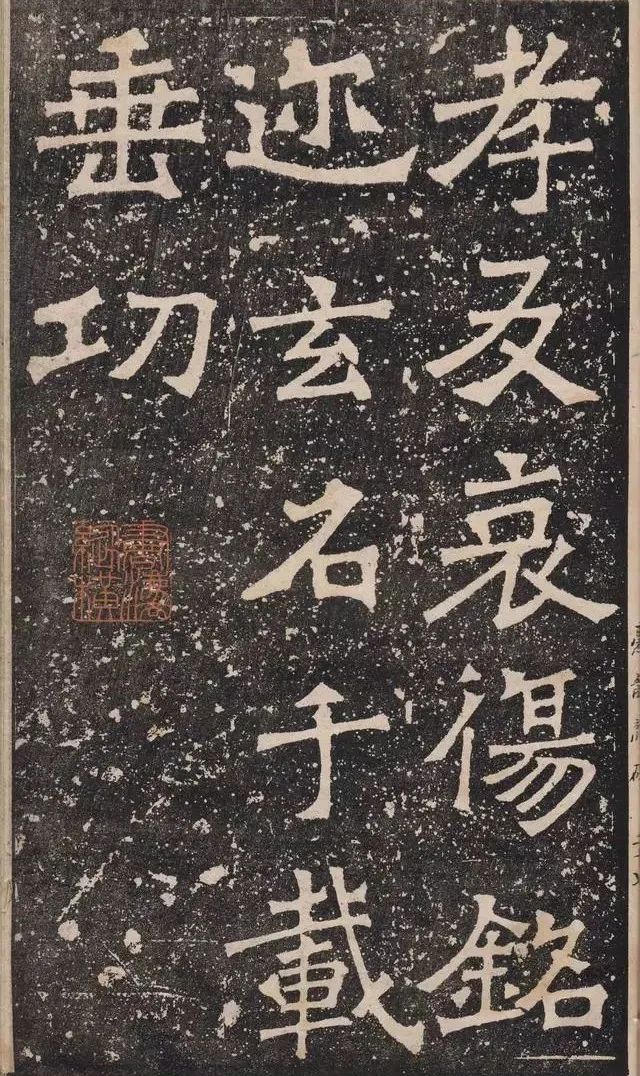 孝友哀傷銘
迩玄石千載
垂功